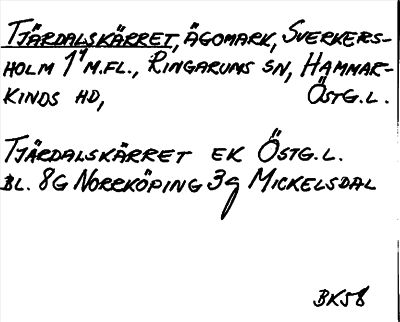 TJÄRDALSKÄRRET, ÄGOMARK, SVERKERS-
HOLM 1⁴ M.FL., RINGARUMS SN, HAMMAR-
KINDS HD, ÖSTG.L.
TJÄRDALSKÄRRET EK ÖSTG.L.
BL. 8G NORRKÖPING 3g MICKELSDAL
BK58